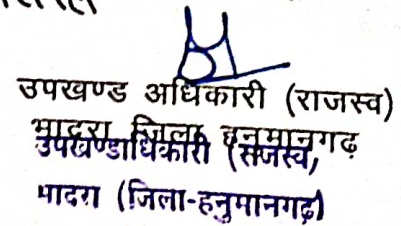 उपखण्ड अधिकारी (राजस्व)
भादरा जिला हनुमानगढ़
उपखण्डाधिकारी (राजस्व,
भादरा (जिला-हनुमानगढ़)